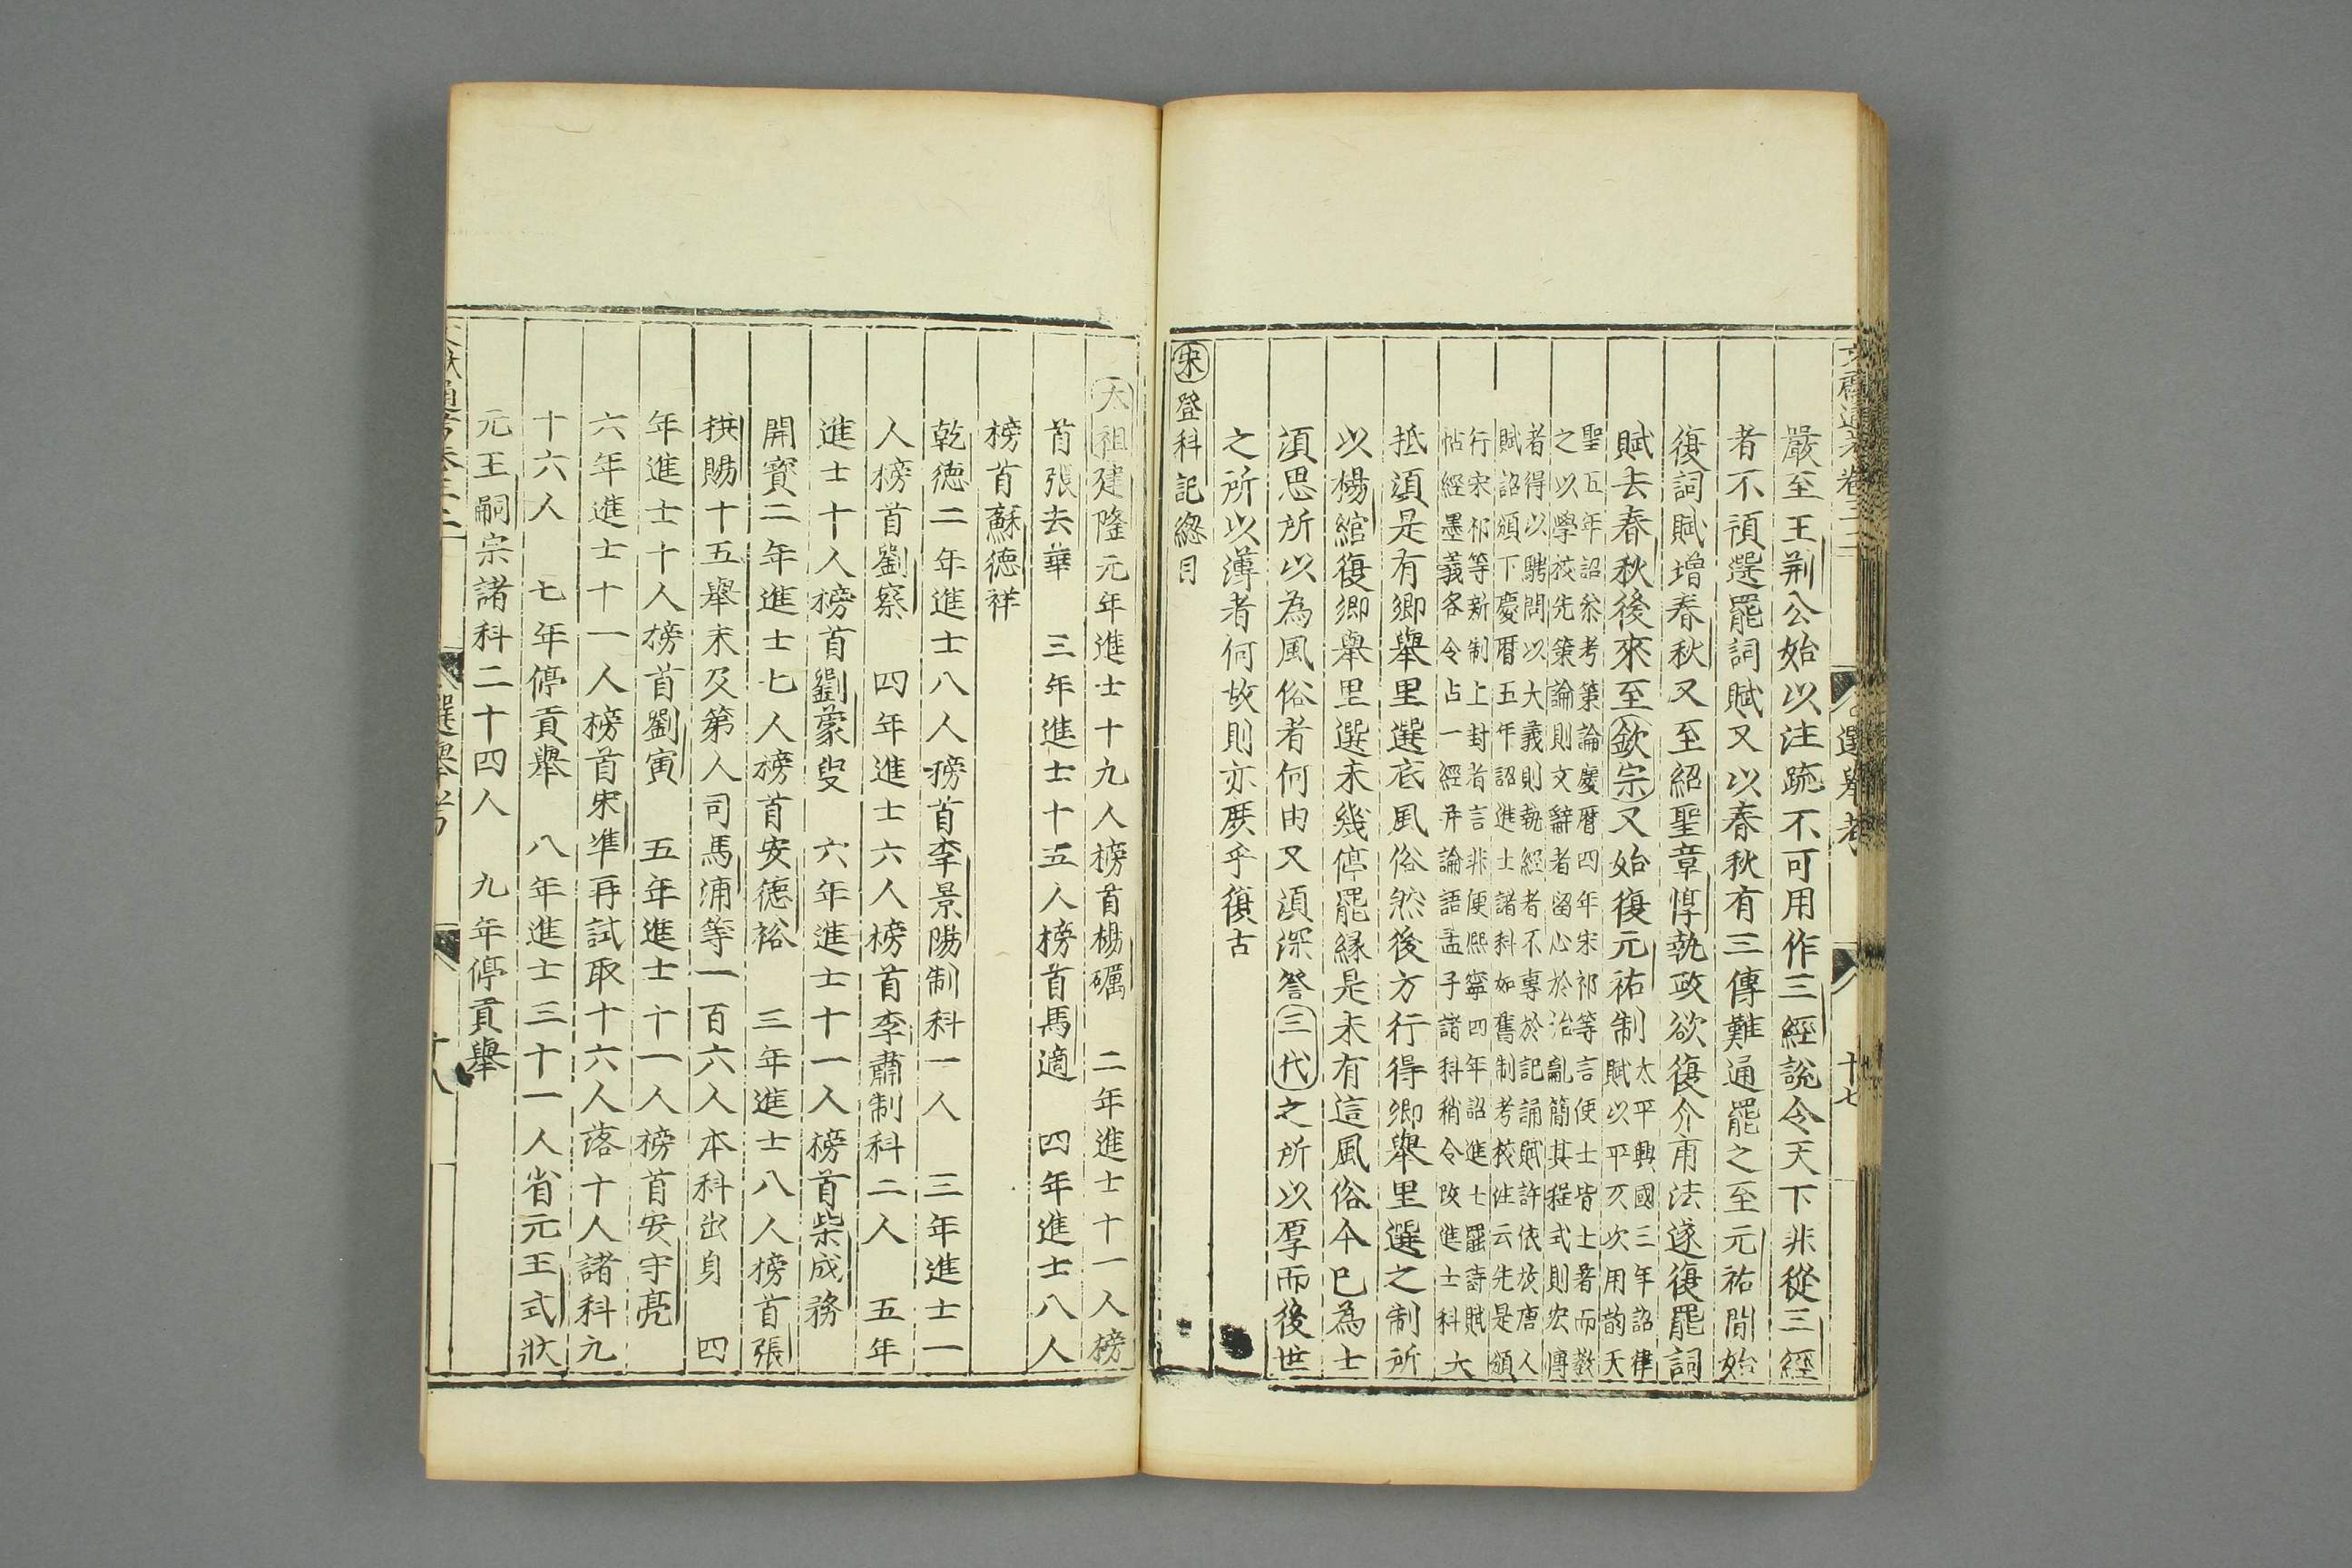 嚴至王荆公始以注疏不可用作三經說令天下非從三經
者不預選罷詞賦又以春秋有三傳難通罷之至元祐間始
復詞賦增春秋又至紹聖章惇執政欲復介甫法遂復罷詞
賦去春秋後來至欽宗又始復元祐制太平興國三年詔律
賦以平仄次用韵天
聖五年詔叅考策論慶暦四年宋祁等言便士皆士著而敎
之以學挍先策論則文辭者留心於治亂簡其程式則宏博
者得以騁問以大義則執經者不專於記誦賦許依放唐人
賦詔頒下慶暦五年詔進士諸科如舊制考校注云先是頒
行宋祁等新制上封者言非便熈寧四年詔進士罷詩賦
帖經墨義各令占一經并論語孟子諸科稍令改進士科大
抵須是有鄉舉里選底風俗然後方行得鄉舉里選之制所
以楊綰復鄉舉里選未幾停罷縁是未有這風俗今已為士
須思所以為風俗者何由又須深詧三代之所以厚而後世
之所以薄者何故則亦庶乎復古
宋登科記緫目
太祖建隆元年進士十九人榜首楊礪　二年進士十一人榜
首張去華　三年進士十五人榜首馬適　四年進士八人
榜首蘇德祥
乾德二年進士八人榜首李景陽制科一人　三年進士一
人榜首劉察　四年進士六人榜首李肅制科二人　五年
進士十人榜首劉蒙叟　六年進士十一人榜首柴成務
開寳二年進士七人榜首安德裕　三年進士八人榜首張
拱賜十五舉末及第人司馬浦等一百六人本科出身　四
年進士十人榜首劉寅　五年進士十一人榜首安守亮
六年進士十一人榜首宋準再試取十六人落十人諸科九
十六人　七年停貢舉　八年進士三十一人省元王式狀
元王嗣宗諸科二十四人　九年停貢舉
選舉考
十七
十八